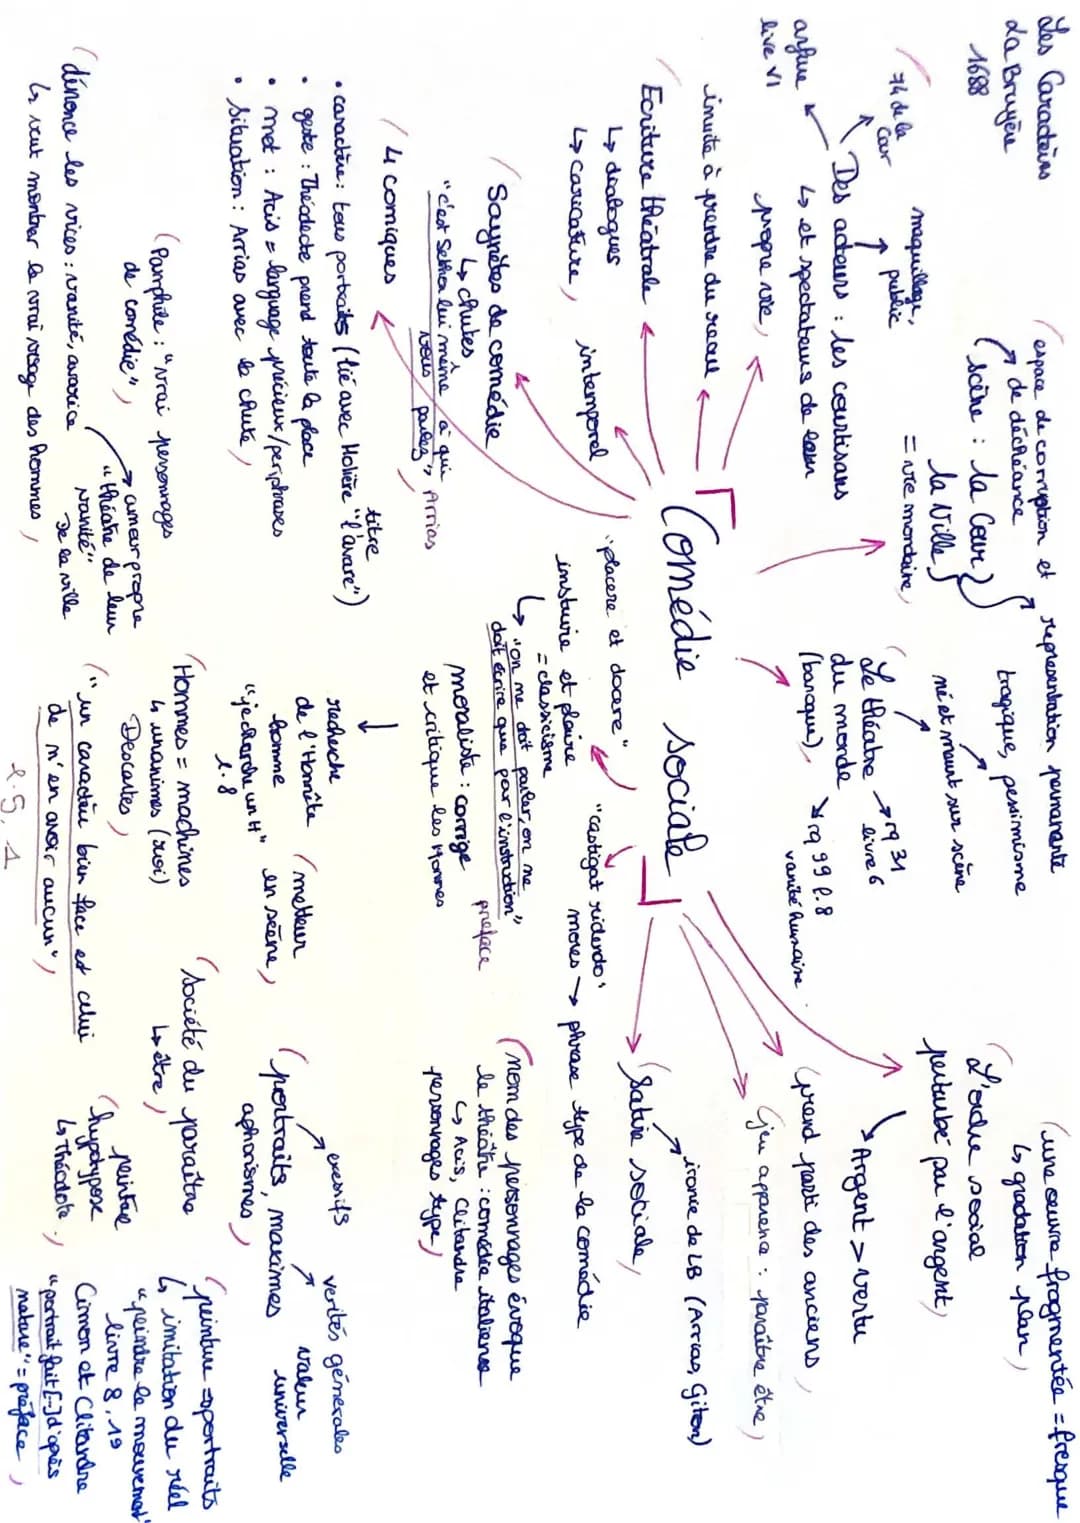 Les Caractères
La Bruyère
1688
espace de corruption et
de déchéance
scène : la Cour
la Ville
= vie mondaine
représentation permanente
tragique, pessimisme
né et meurt sur scène
Le théâtre
du monde
(baroque)
rq 31
livre 6
rq 99 l.8
vanité humaine
une œuvre fragmentée = fresque
↳ gradation plan
L'ordre social
pertube par l'argent
Argent > vertu
prend parti des anciens
Jeu apparence : paraître être
74 de la
Cour
maquillage,
public
Des acteurs : les courtisans
↳ et spectateurs de leur
propre vie
livre VI
invite à prendre du recul
Ecriture théâtrale
↳ dialogues
↳ caricature
intemporel
Comédie sociale
Saynètes de comédie
↳ chutes
"c'est Sethon lui même à qui
vous parlez" Arrias
4 comiques
• caractère : tous portraits (lié avec Molière "l'avare")
titre
• geste : Théodecte prend toute la place
• mot : Acis = language précieux/periphrases
• situation : Arrias avec la chute
"placere et docere"
instuire et plaire
= classicisme
↳ "on ne doit parler, on ne
doit écrire que pour l'instruction"
préface
moraliste : corrige
et critique les Hommes
"castigat ridendo
mores" → phrase type de la comédie
Satire sociale
ironie de LB (Arrias, Giton)
nom des personnages évoque
le théâtre : comédie italienne
↳ Acis, Clitandre
personnages type
recherche
de l'Honnête
homme
l.8
metteur
en scène
portraits, maximes
aphorismes
verités générales
valeur
universelle
Pamphile : "vrai personnages
de comédie"
dénonce les vices : vanité, avarice
↳ veut montrer le vrai visage des hommes
amour propre
"théâtre de leur
vanité"
De la ville
Hommes = machines
↳ unanimes (roi)
Descartes
"un caractère bien face est celui
de n'en avoir aucun"
Société du paraître
↳ être
hypotypose
↳ Théodote
peinture → portraits
↳ imitation du réel
"peindre le mouvement"
livre 8, 19
Cimon et Clitandre
"portrait fait [-] d'après
nature" = préface